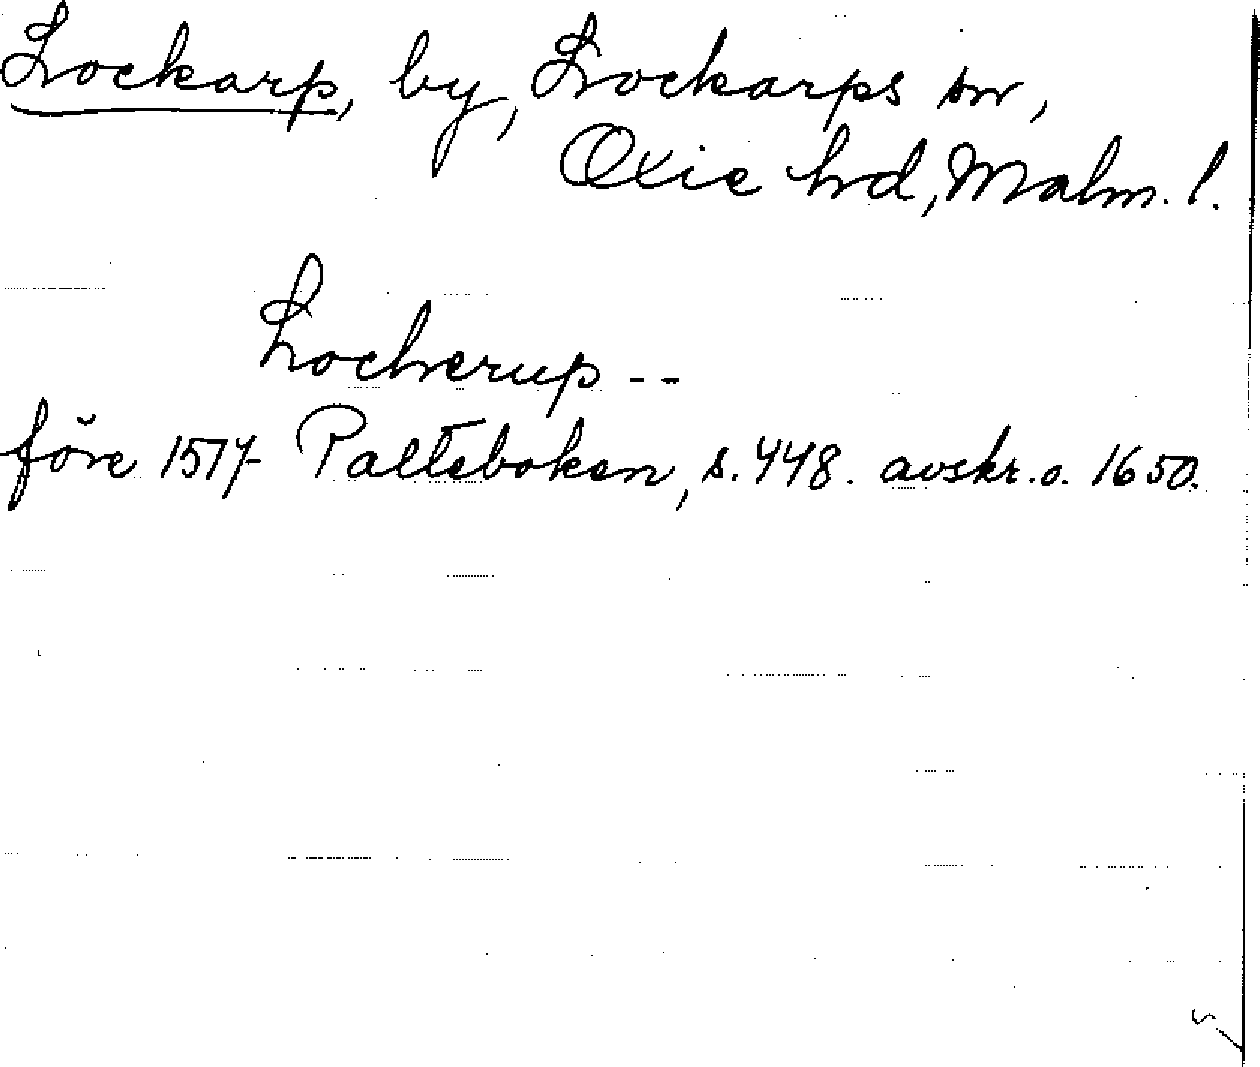 Lockarp, by, Lockarps sn,
Oxie hrd, Malm. l.
Locherup --
före 1517 Palteboken, s. 448. avskr. o. 1650.